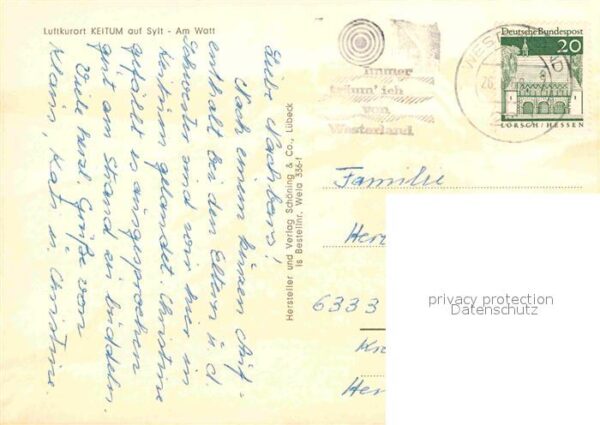 Luftkurort KEITUM auf Sylt - Am Watt
Liebe Nachbarn!
Nach einem kurzen Auf-
enthalt bei den Eltern u. d.
Schwester sind wir hier in
Keitum gelandet. Christine
gefällt es ausgesprochen
gut am Strand zu buddeln.
Viele herzl. Grüße von
Klaus, Kat u. Christine.
Hersteller und Verlag Schöning & Co., Lübeck
Is Bestellnr. Wela 336-f
immer
träum' ich
von
Westerland
WEST
26.
Deutsche Bundespost
20
LORSCH/HESSEN
Familie
Her
6333
Kr
Her
privacy protection
Datenschutz